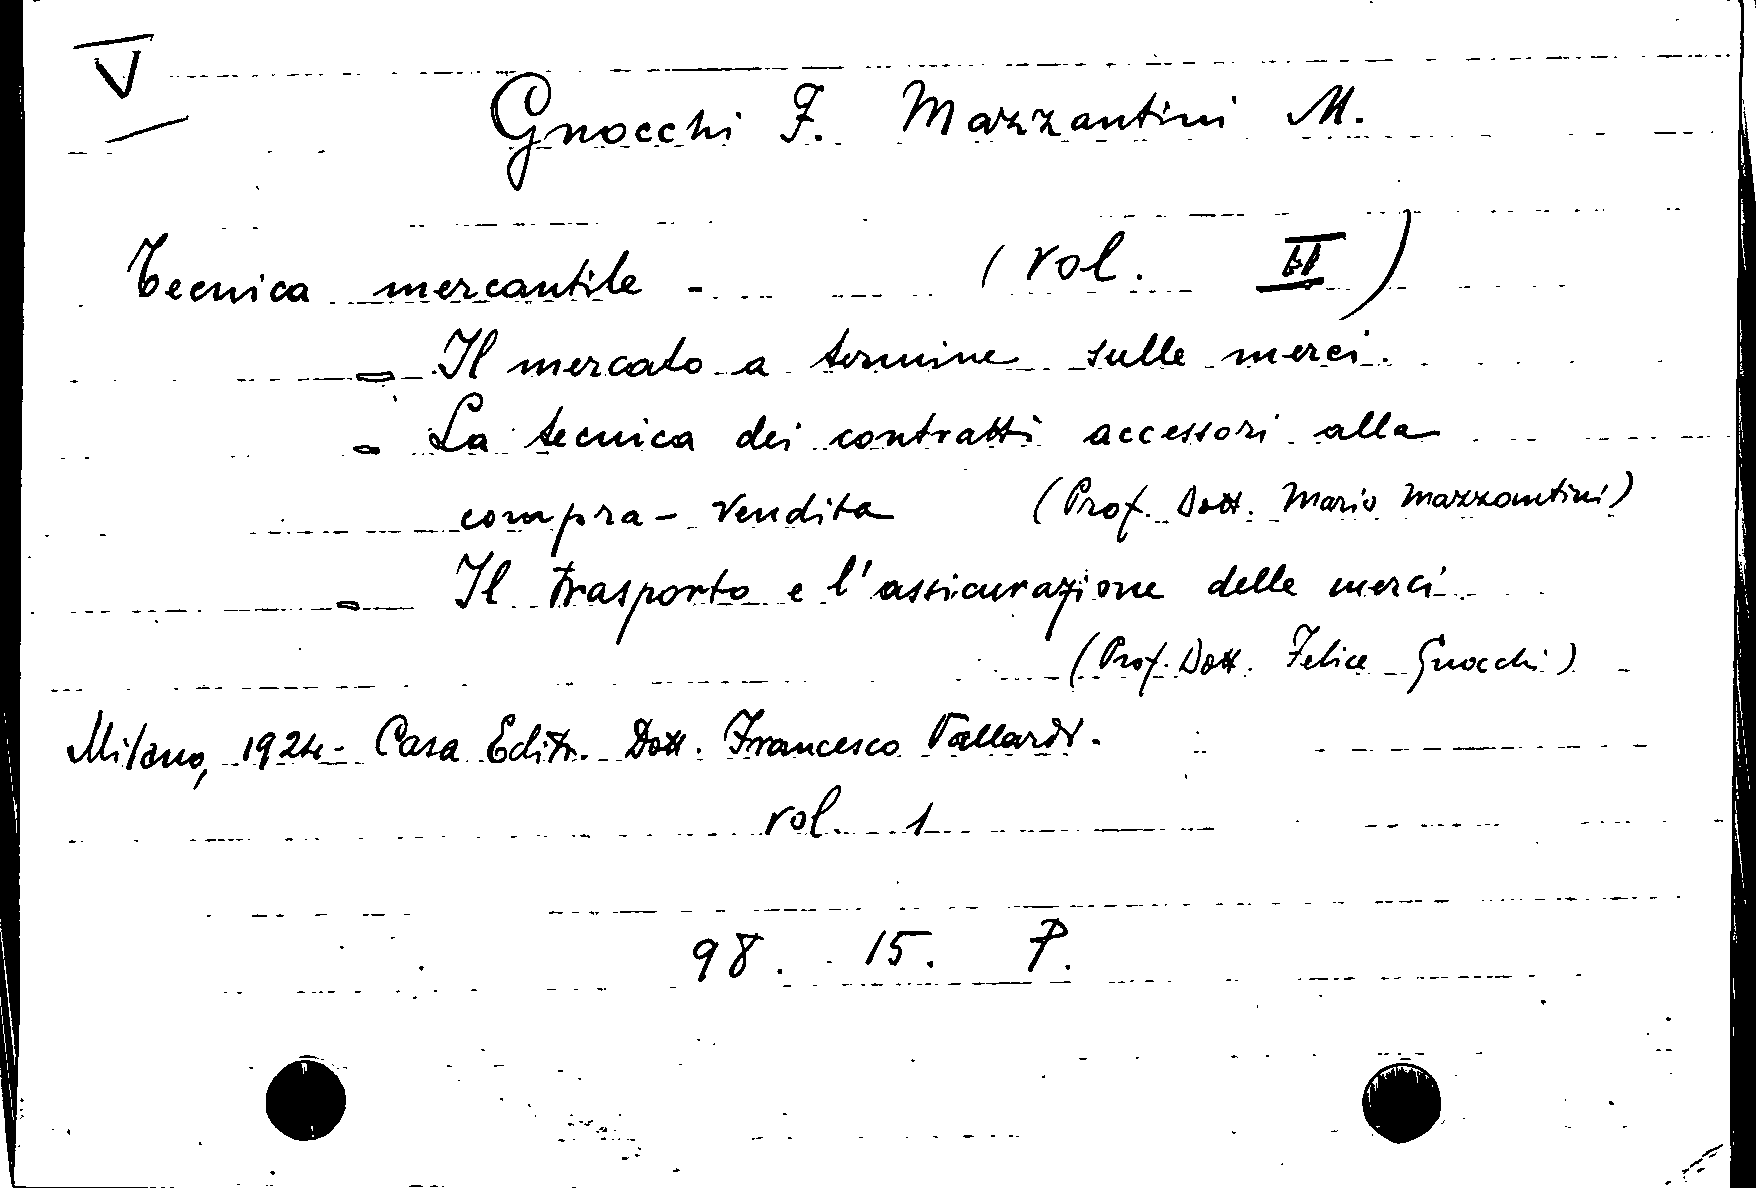 V
Gnocchi F. Mazzantini M.
Tecnica mercantile - (vol. II)
- Il mercato a termine sulle merci.
- La tecnica dei contratti accessori alla
compra-vendita (Prof. Dott. Mario Mazzantini)
- Il trasporto e l'assicurazione delle merci
(Prof. Dott. Felice Gnocchi)
Milano, 1924 - Casa Editr. Dott. Francesco Vallardi.
vol. 1
98. 15. P.